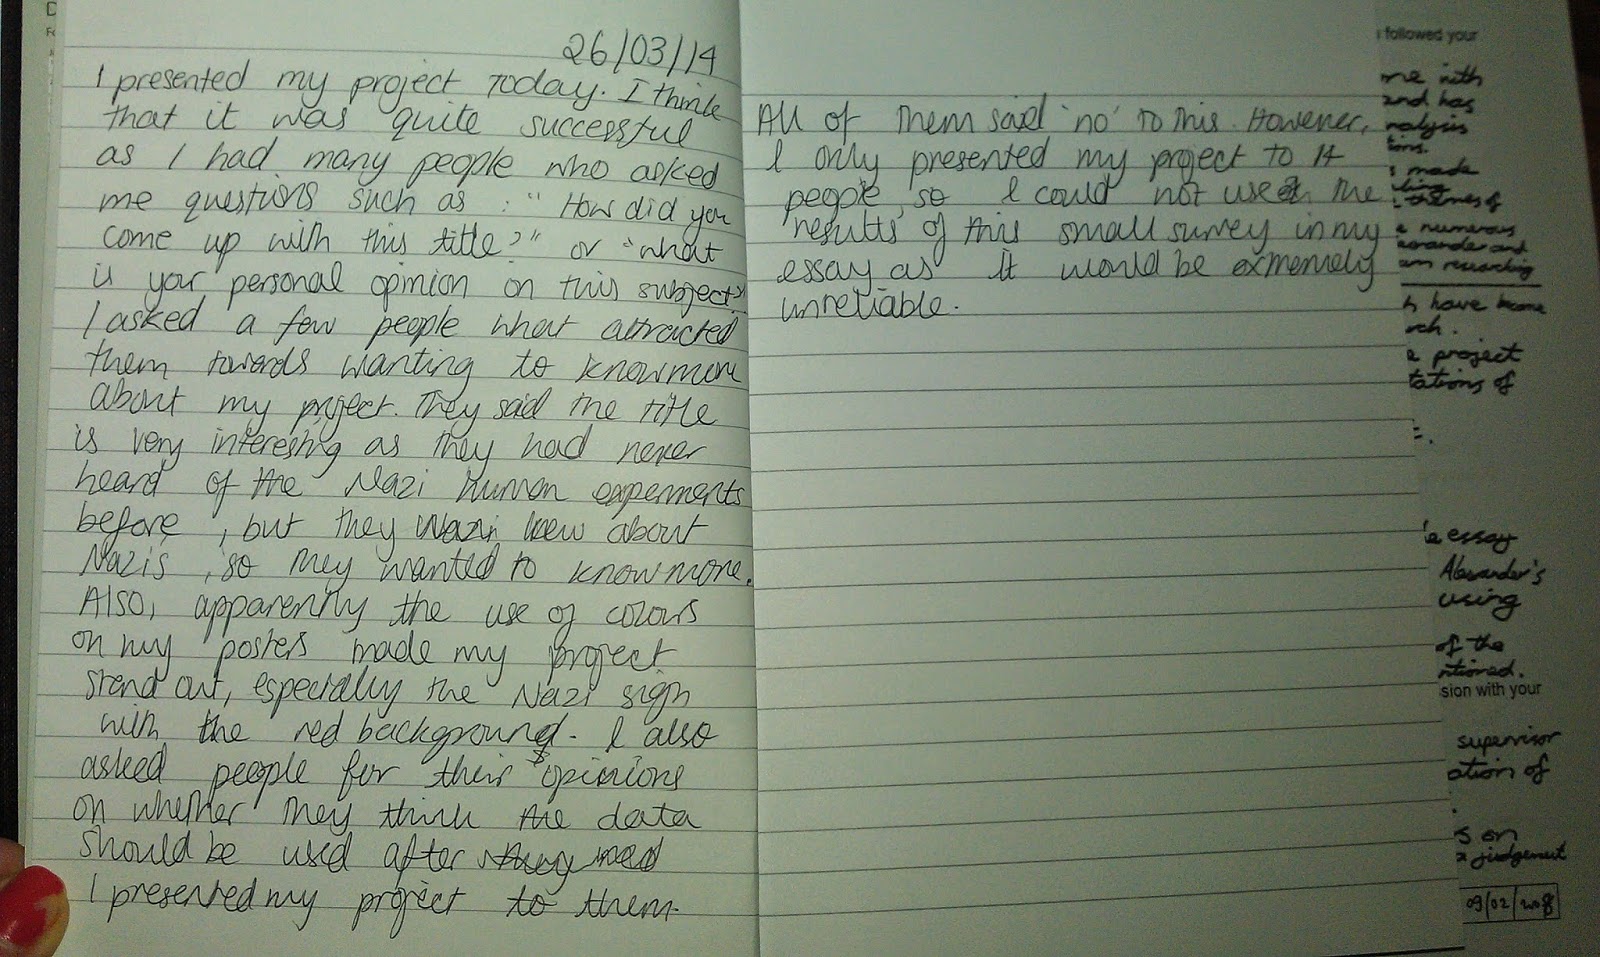 26/03/14
I presented my project today. I think
that it was quite successful
as I had many people who asked
me questions such as : "How did you
come up with this title?" or "what
is your personal opinion on this subject?"
I asked a few people what attracted
them towards wanting to know more
about my project. They said the title
is very interesting as they had never
heard of the Nazi human experiments
before, but they knew about
Nazis, so they wanted to know more.
Also, apparently the use of colours
on my posters made my project
stand out, especially the Nazi sign
with the red background. I also
asked people for their opinions
on whether they think the data
should be used after
I presented my project to them.
All of them said 'no' to this. However,
I only presented my project to 14
people, so I could not use the
results of this small survey in my
essay as it would be extremely
unreliable.
followed your
me with
and has
analysis
made
themes of
numerous
and
am researching
have become
project
essay
Alexander's
using
of the
sion with your
supervisor
ation of
s on
judgement
09/02/